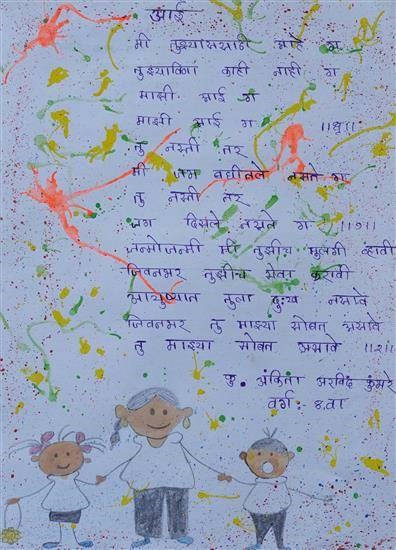 आई
मी तुझ्यासाठी आहे ग
तुझ्याविना काही नाही ग
माझी आई ग
माझी आई ग ।।धृ।।
तु नसती तर
मी जग बघीतले नसते ग
तु नसती तर
जग दिसले नसते ग ।।१।।
जन्मोजन्मी मी तुझीच मुलगी व्हावी
जिवनभर तुझीच सेवा करावी
आयुष्यात तुला दुःख नसावे
जिवनभर तु माझ्या सोबत असावे
तु माझ्या सोबत असावे ।।२।।
कु. अंकिता अरविंद कुमरे
वर्ग:- ८वा